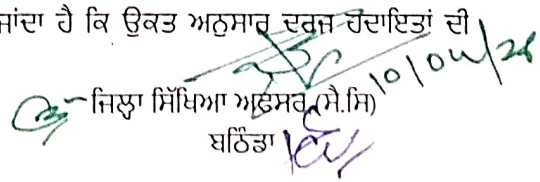 ਜਾਂਦਾ ਹੈ ਕਿ ਉਕਤ ਅਨੁਸਾਰ ਦਰਜ ਹਦਾਇਤਾਂ ਦੀ
ਜਿਲ੍ਹਾ ਸਿੱਖਿਆ ਅਫਸਰ (ਸੈ.ਸਿ)
ਬਠਿੰਡਾ